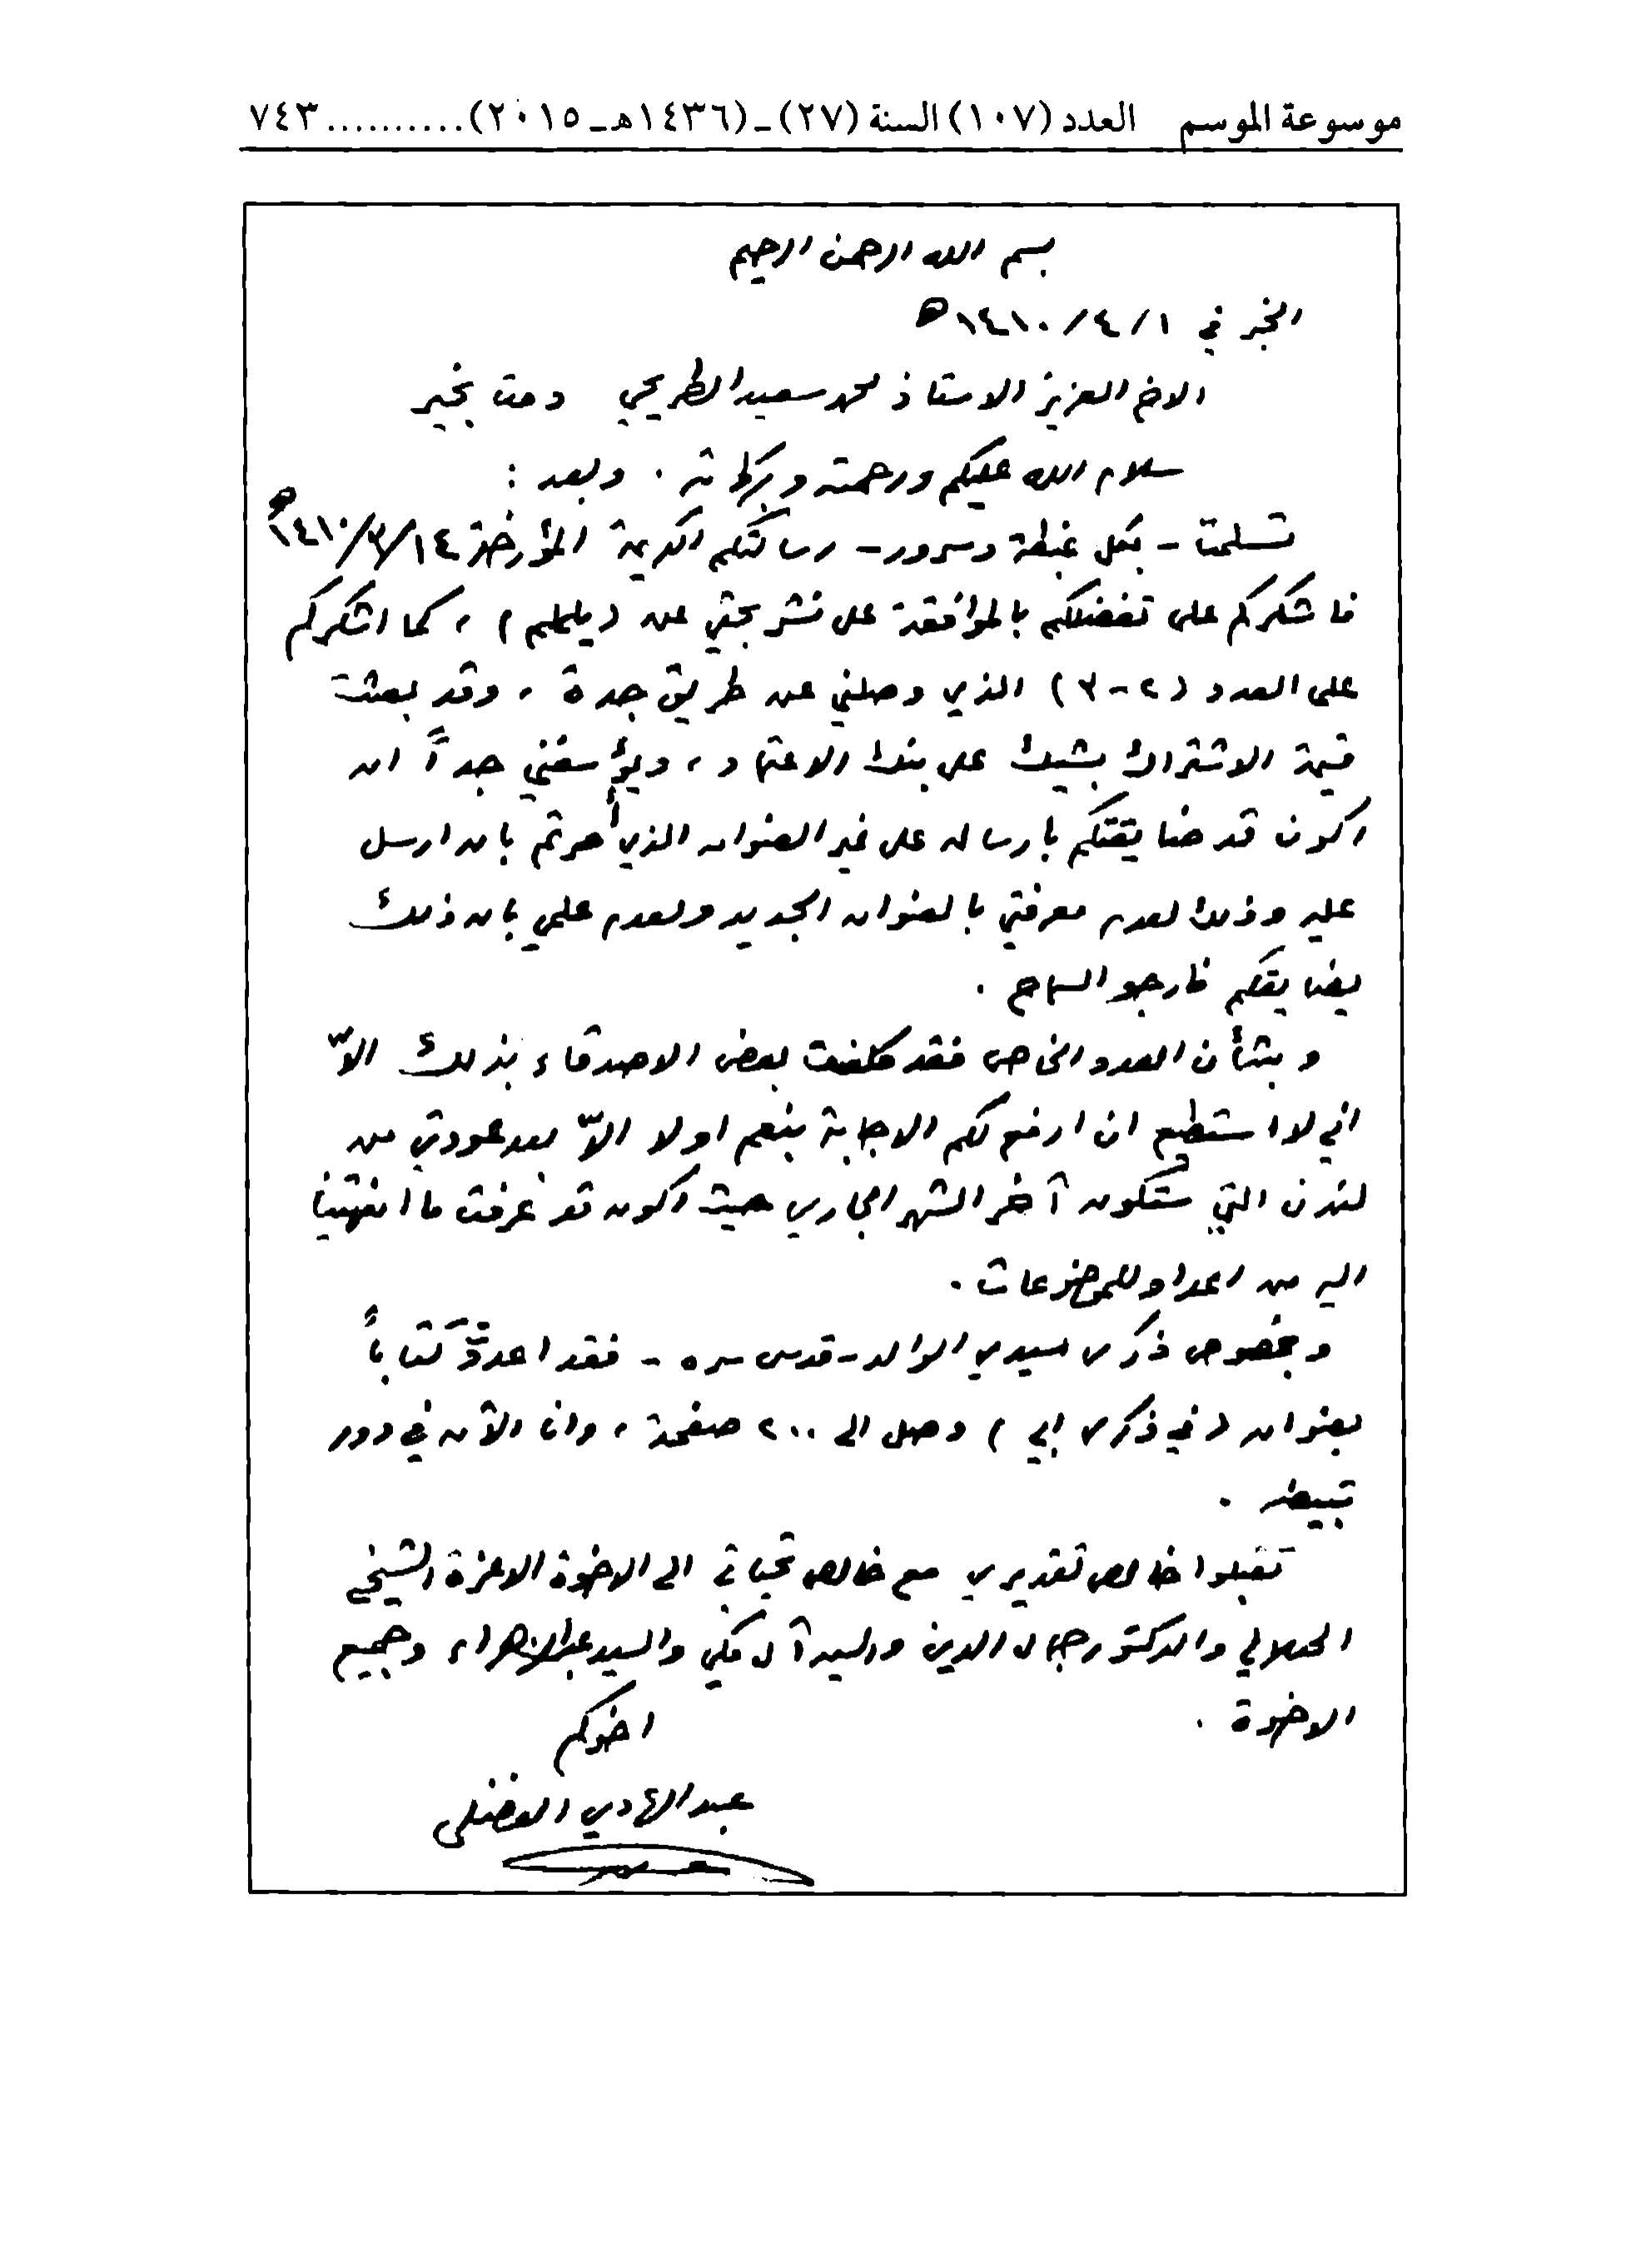 موسوعة الموسم العدد (١٠٧) السنة (٢٧) ـ (١٤٣٦هـ ـ ٢٠١٥) .......... ٧٤٣
بسم الله الرحمن الرحيم
الخبر في ١ / ٤ / ١٤١٠ هـ
الاخ العزيز الاستاذ محمد سعيد الطريحي دمت بخير
سلام الله عليكم ورحمته وبركاته . وبعد :
تسلمت - بكل غبطة وسرور - رسالتكم الكريمة المؤرخة ١٤/٣/١٤١٠ هـ
فاشكركم على تفضلكم بالموافقة على نشر بحثي عن (يلملم) ، كما اشكركم
على العدد (٢-٣) الذي وصلني عن طريق جدة ، وقد بعثت
قيمة الاشتراك بشيك على بنك الاعتماد ، ويؤسفني جداً ان
اكون قد ضايقتكم بارساله على غير العنوان الذي أمرتم بان ارسل
عليه وذلك لعدم معرفتي بالعنوان الجديد ولعدم علمي بان ذلك
يضايقكم فارجو السماح .
وبشأن العدد الخاص فقد كلفت بعض الاصدقاء بذلك الاّ
اني لا استطيع ان ارفع لكم الاجابة بنعم او لا الاّ بعد عودتي من
لندن التي ستكون آخر الشهر الجاري حيث اكون قد عرفت ما انتهينا
اليه من اعداد للموضوعات .
وبخصوص ذكرى سيدي الوالد - قدس سره - فقد اعددتُ كتاباً
بعنوان (في ذكرى ابي) وصل الى ٢٠٠ صفحة ، وانا الآن في دور
تبييضه .
تقبلوا خالص تقديري مع خالص تحياتي الى الاخوة الاعزة الشيخ
الهلالي والدكتور جمال الدين والسيد آل مكي والسيد عبد الزهراء وجميع
الاخوة .
اخوكم
عبد الهادي الفضلي